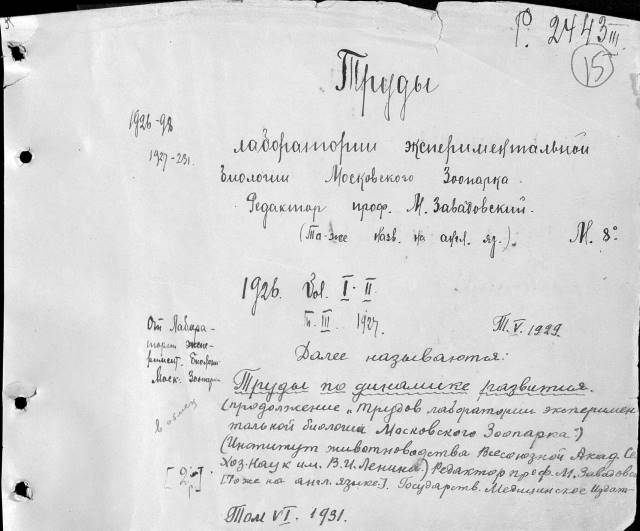 Р. 2443 III
15
Труды
1926-98
1927-231.
лаборатории экспериментальной
биологии Московского Зоопарка.
Редактор проф. М. Завадовский.
(То-же назв. на англ. яз.). М. 8°
1926. Vol. I-II
Т. III. 1927. Т. V. 1929.
Далее называются:
От Лабора-
тории экспе-
римент. Биологи
Моск. Зоопарк
Труды по динамике развития.
(продолжение "Трудов лаборатории эксперимен
тальной биологии Московского Зоопарка")
(Институт животноводства Всесоюзной Акад. Се
Хоз. Наук им. В.И. Ленина.) Редактор проф. М. Завадовс
[Тоже на англ. языке]. Государств. Медицинское Издат
В обмен
Том VI. 1931.